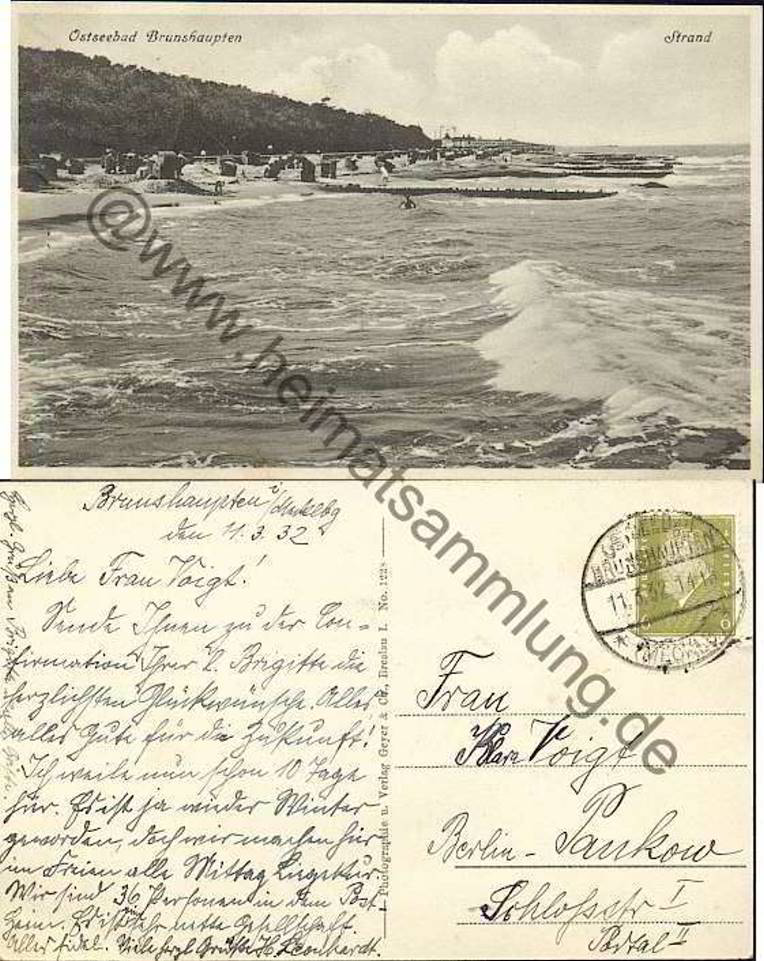 Ostseebad Brunshaupten
Strand
@www.heimatsammlung.de
Brunshaupten i/Mecklbg
den 11.3.32
Liebe Frau Voigt!
Sende Ihnen zu der Con=
firmation Ihrer l. Brigitte die
herzlichsten Glückwünsche. Alles
alles Gute für die Zukunft!
Ich weile nun schon 10 Tage
hier. Es ist ja wieder Winter
geworden, doch wir machen hier
im Freien alle Mittag Liegekur.
Wir sind 36 Personen in dem Post
heim. Es ist eine sehr nette Gesellschaft.
Alles fidel. Viele herzl. Grüße H. Leonhardt.
Photographie u. Verlag Geyer & Co., Breslau I. No. 1228
OSTSEEBAD
BRUNSHAUPTEN
11.3.32.14-15
* (MECKLB)
6 6
Frau
Klara Voigt
Berlin-Pankow
Schloßstr I
Portal II